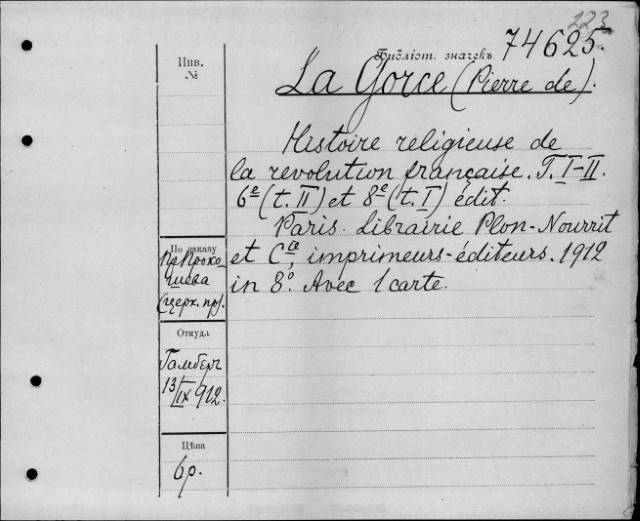 223
Библіот. значекъ 74625
Инв.
№
La Gorce (Pierre de).
Histoire religieuse de
la revolution française. T. I-II.
6e (t. II) et 8e (t. I) édit.
Paris. Librairie Plon-Nourrit
et Cie, imprimeurs-éditeurs. 1912
in 8°. Avec 1 carte.
По заказу
Пр. Проко-
шева
(церк. пр.).
Откуда
Гамберг
13/IX 912.
Цѣна
6 р.